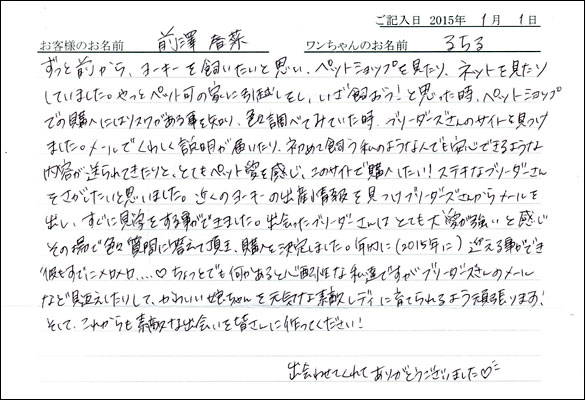 ご記入日 2015年 1月 1日
お客様のお名前 前澤 香菜 ワンちゃんのお名前 るちる
ずっと前から、ヨーキーを飼いたいと思い、ペットショップを見たり、ネットを見たり
していました。やっとペット可の家に引越しをし、いざ飼おう!と思った時、ペットショップ
での購入にはリスクがある事を知り、色々調べてみていた時、ブリーダーズさんのサイトを見つけ
ました。メールでくわしく説明が届いたり、初めて飼う私のような人でも安心できるような
内容が送られてきたりと、とてもペット愛を感じ、このサイトで購入したい!ステキなブリーダーさん
をさがしたいと思いました。近くのヨーキーの出産情報を見つけブリーダーズさんからメールを
出し、すぐに見学をする事ができました。出会ったブリーダーさんはとても犬愛が強いと感じ
その場で色々質問に答えて頂き、購入を決定しました。年内に(2015年に)迎える事ができ
すでにメロメロ....♡ちょっとでも何かあると心配性な私達ですがブリーダーズさんのメール
など見返えしたりして、かわいい娘ちゃんを元気な素敵レディに育てられるよう頑張ります!
そして、これからも素敵な出会いを皆さんに作ってください!
出会わせてくれてありがとうございました♡